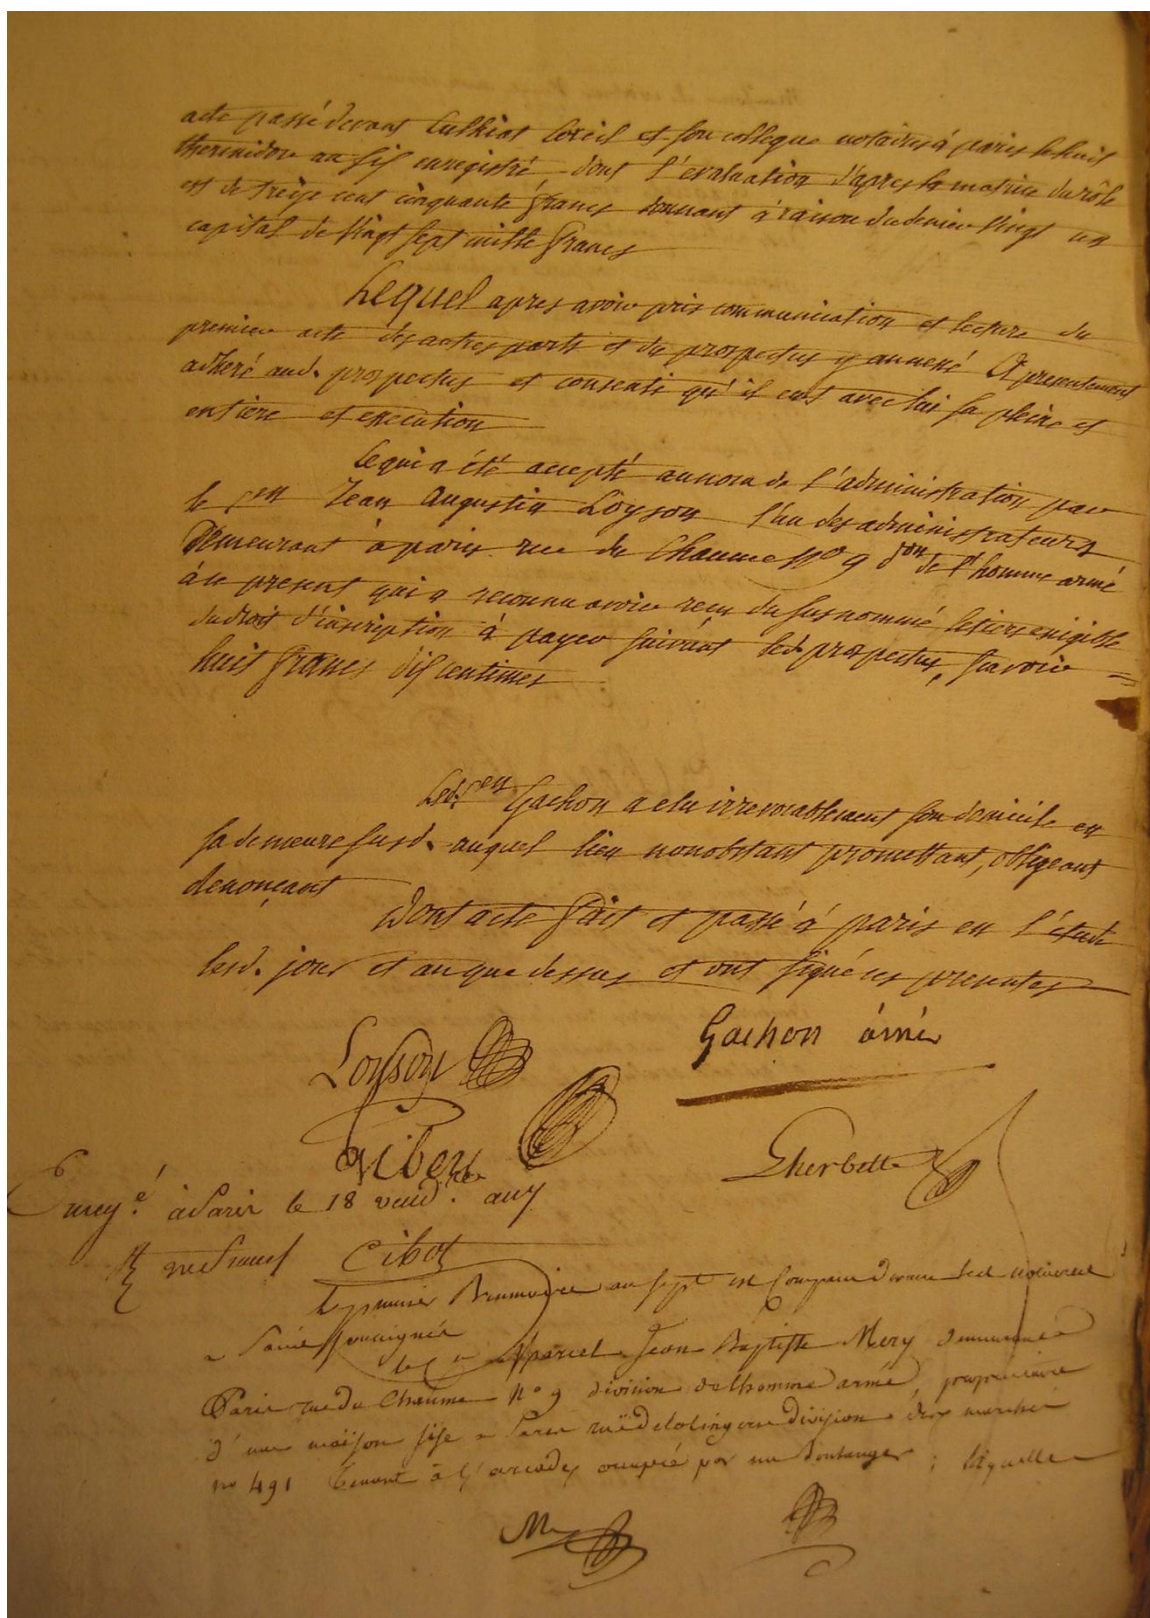 acte passé devant Cuthiat Coreil et son collegue notaires à paris le huit
thermidor an six enregistré dont l'évaluation d'apres la matrice du rôle
est de treize cent cinquante francs donnant à raison du denier vingt un
capital de vingt sept mille francs
Lequel apres avoir pris communication et lecture du
premier acte des autres parts et du prospectus y annexé A presentement
adheré aud. prospectus et consenti qu'il eut avec lui sa pleine et
entiere et execution
Ce qui a été accepté au nom de l'administration par
le cen Jean Augustin Loyson l'un des administrateurs
Demeurant à paris rue du Chaume No 9 don de l'homme armé
à ce present qui a reconnu avoir recu du susnommé le tiers exigible
du droit d'inscription à payer suivant led. prospectus, savoir =
huit francs dix centimes
Led. cen Gachon a elu irrevocablement son domicile en
sa demeure susd. auquel lieu nonobstant promettant, obligeant
denonçant
Dont acte fait et passé à paris en l'étude
lesd. jour et an que dessus et ont signé ces presentes
Loyson Gachon ainé
Gibert Gherbette
Enregé. à Paris le 18 vend.re an 7
R un franc Cibot
Le premier Brumaire an sept est Comparu devant led notaires
a Paris soussignés
le Cen Marcel Jean Baptiste Mery demeurant a
Paris rue du Chaume No 9 division de lhomme armé, proprietaire
d'une maison sise a Paris rue de la lingerie division des marchés
no 491 tenant à l'arcade occupée par un Boulanger ; laquelle
M